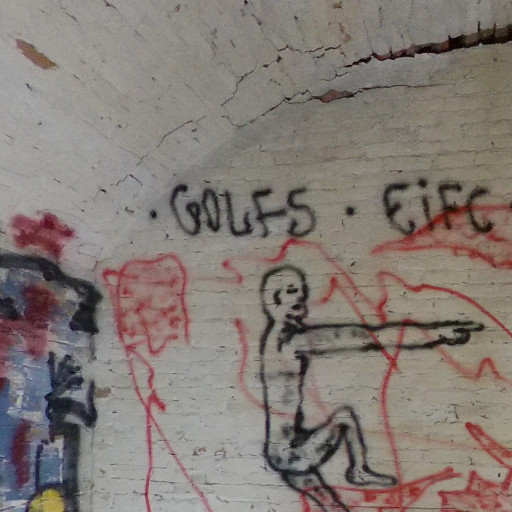 · GOLFS · EiFC ·